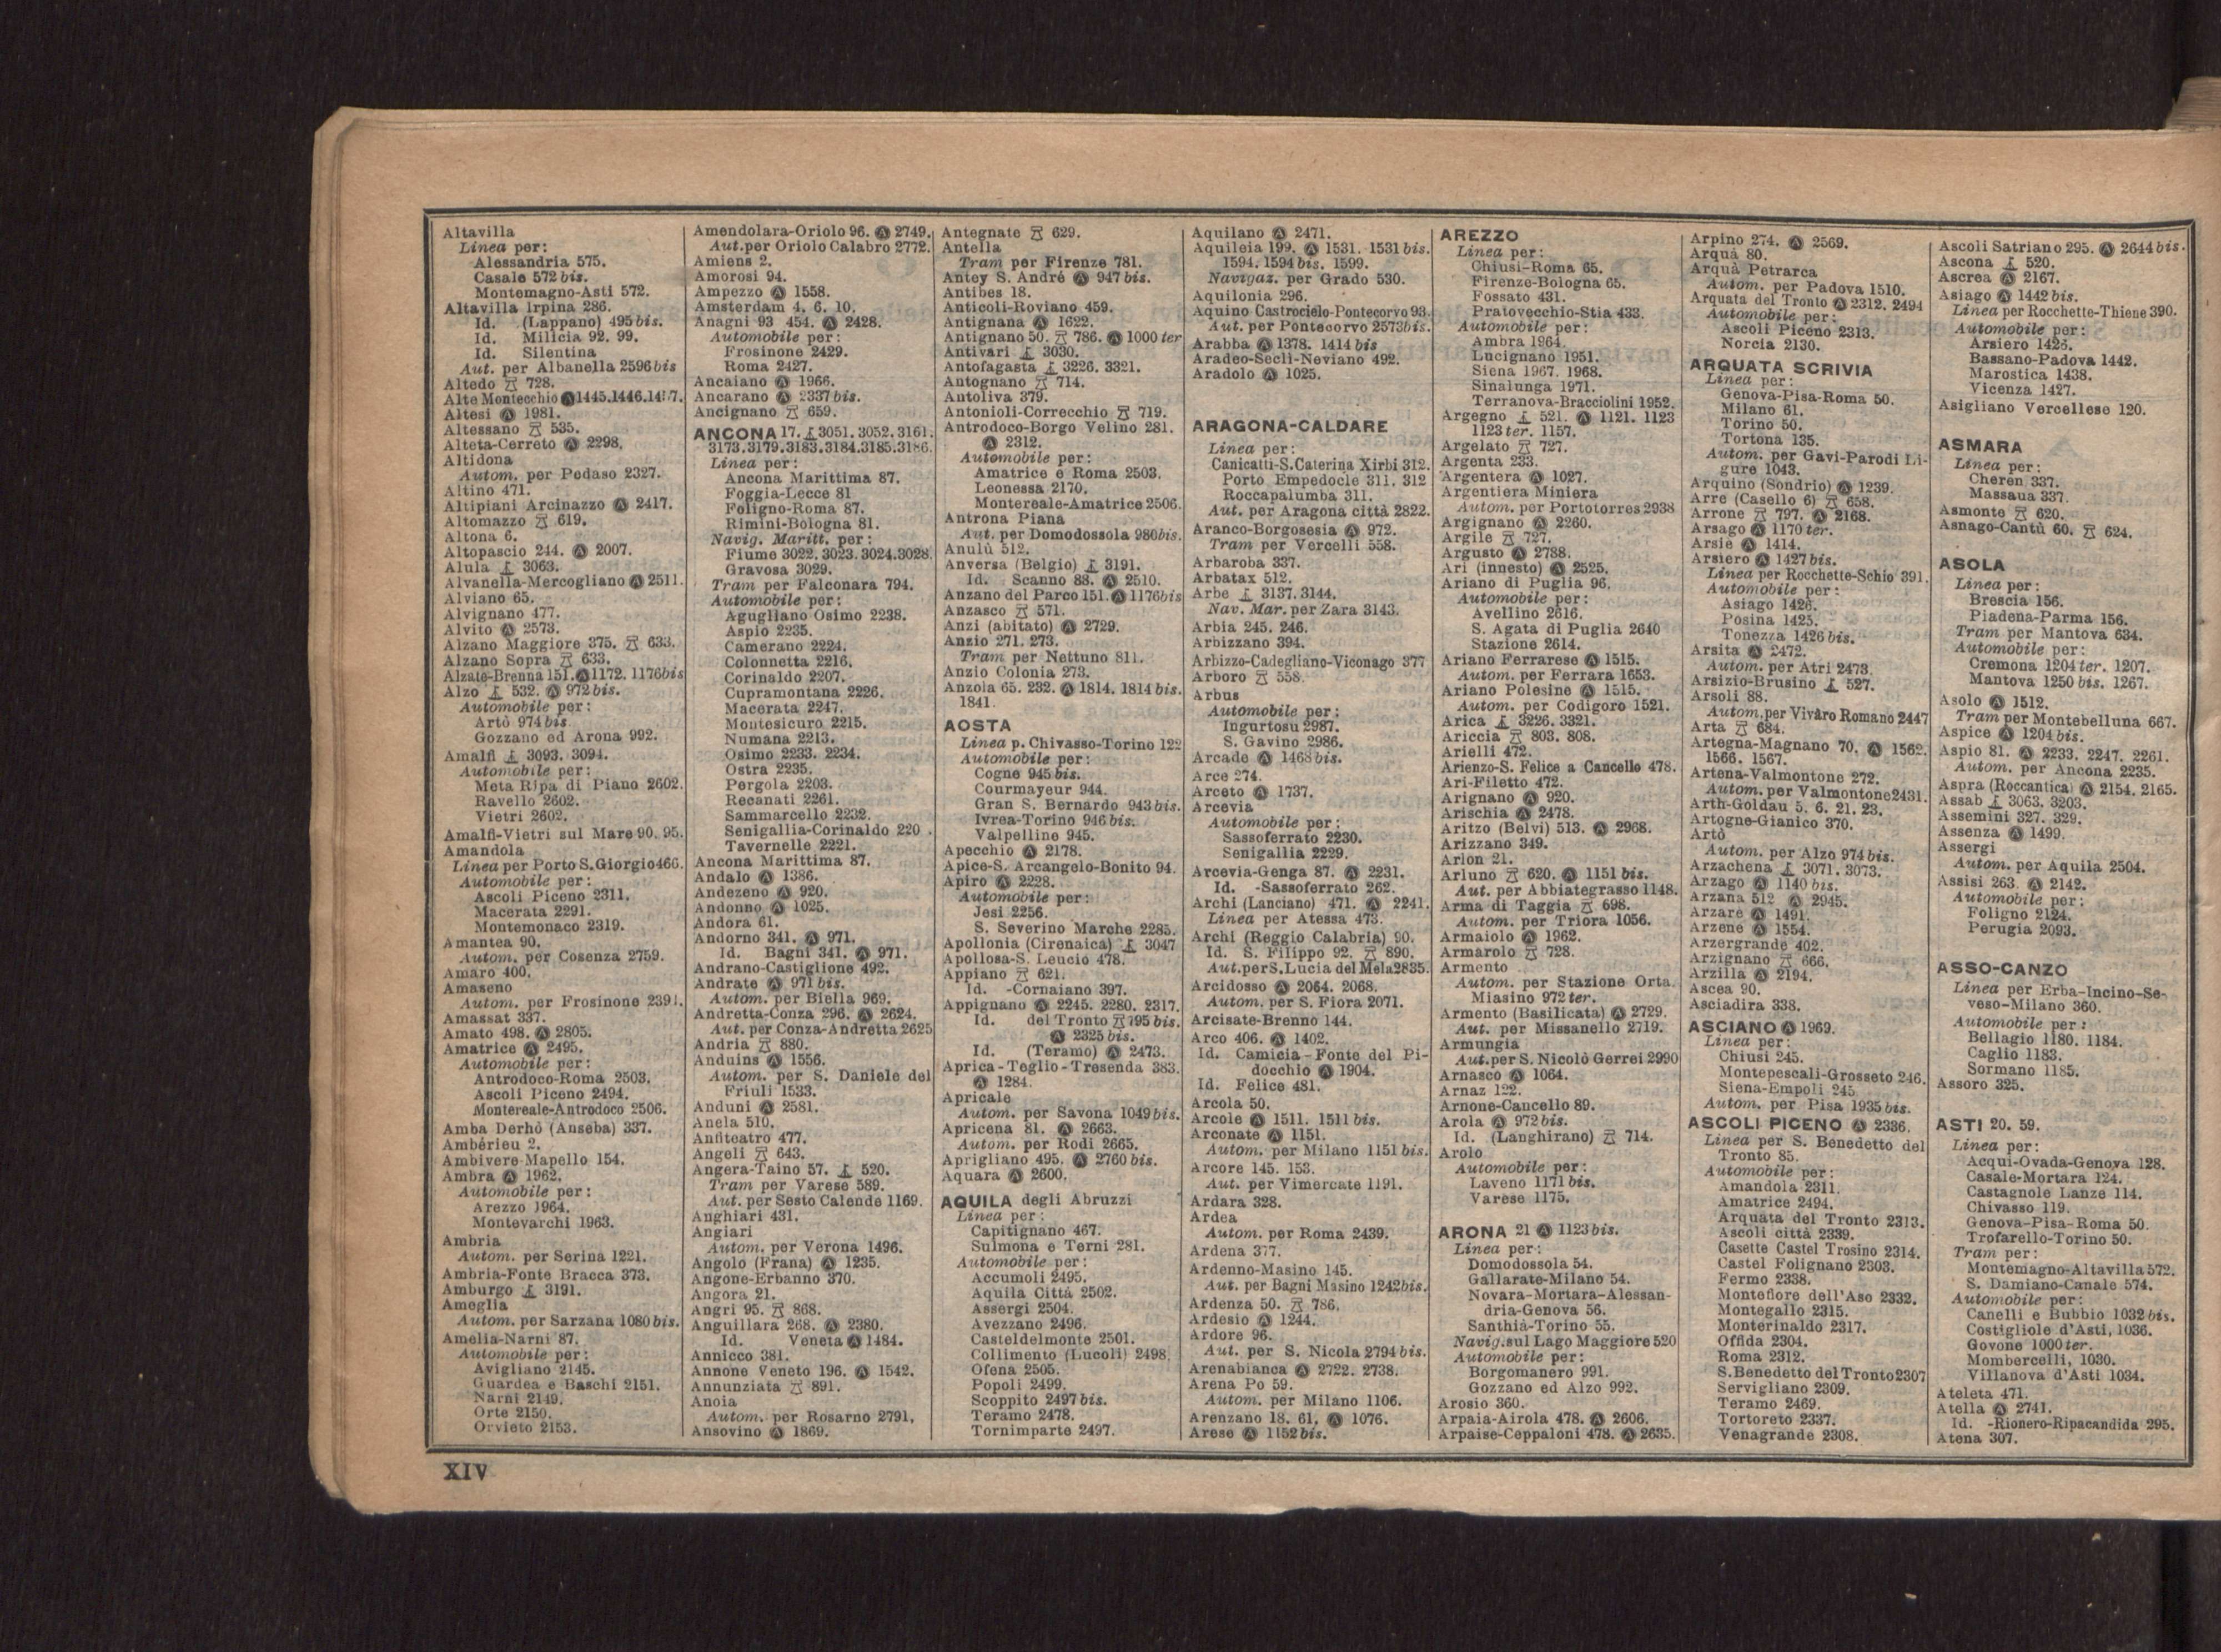 Altavilla
Linea per:
Alessandria 575.
Casale 572 bis.
Montemagno-Asti 572.
Altavilla Irpina 286.
Id. (Lappano) 495 bis.
Id. Milicia 92. 99.
Id. Silentina
Aut. per Albanella 2596 bis
Altedo 728.
Alte Montecchio Ⓐ 1445.1446.
Altesi Ⓐ 1981.
Altessano 535.
Alteta-Cerreto Ⓐ 2298.
Altidona
Autom. per Pedaso 2327.
Altino 471.
Altipiani Arcinazzo Ⓐ 2417.
Altomazzo 619.
Altona 6.
Altopascio 244. Ⓐ 2007.
Alula 3063.
Alvanella-Mercogliano Ⓐ 2511.
Alviano 65.
Alvignano 477.
Alvito Ⓐ 2573.
Alzano Maggiore 375. 633.
Alzano Sopra 633.
Alzate-Brenna 151. Ⓐ 1172. 1176 bis
Alzo 532. Ⓐ 972 bis.
Automobile per:
Artò 974 bis
Gozzano ed Arona 992.
Amalfi 3093. 3094.
Automobile per:
Meta Ripa di Piano 2602.
Ravello 2602.
Vietri 2602.
Amalfi-Vietri sul Mare 90. 95.
Amandola
Linea per Porto S. Giorgio 466.
Automobile per:
Ascoli Piceno 2311.
Macerata 2291.
Montemonaco 2319.
Amantea 90.
Autom. per Cosenza 2759.
Amaro 400.
Amaseno
Autom. per Frosinone 2391.
Amassat 337.
Amato 498. Ⓐ 2805.
Amatrice Ⓐ 2495.
Automobile per:
Antrodoco-Roma 2503.
Ascoli Piceno 2494.
Montereale-Antrodoco 2506.
Amba Derhò (Anseba) 337.
Ambérieu 2.
Ambivere Mapello 154.
Ambra Ⓐ 1962.
Automobile per:
Arezzo 1964.
Montevarchi 1963.
Ambria
Autom. per Serina 1221.
Ambria-Fonte Bracca 373.
Amburgo 3191.
Ameglia
Autom. per Sarzana 1080 bis.
Amelia-Narni 87.
Automobile per:
Avigliano 2145.
Guardea e Baschi 2151.
Narni 2149.
Orte 2150.
Orvieto 2153.
Amendolara-Oriolo 96. Ⓐ 2749.
Aut. per Oriolo Calabro 2772.
Amiens 2.
Amorosi 94.
Ampezzo Ⓐ 1558.
Amsterdam 4. 6. 10.
Anagni 93 454. Ⓐ 2428.
Automobile per:
Frosinone 2429.
Roma 2427.
Ancaiano Ⓐ 1966.
Ancarano Ⓐ 2337 bis.
Ancignano 659.
ANCONA 17. 3051. 3052. 3161.
3173.3179.3183.3184.3185.3186.
Linea per:
Ancona Marittima 87.
Foggia-Lecce 81
Foligno-Roma 87.
Rimini-Bologna 81.
Navig. Maritt. per:
Fiume 3022. 3023. 3024.3028.
Gravosa 3029.
Tram per Falconara 794.
Automobile per:
Agugliano Osimo 2238.
Aspio 2235.
Camerano 2224.
Colonnetta 2216.
Corinaldo 2207.
Cupramontana 2226.
Macerata 2247.
Montesicuro 2215.
Numana 2213.
Osimo 2233. 2234.
Ostra 2235.
Pergola 2203.
Recanati 2261.
Sammarcello 2232.
Senigallia-Corinaldo 220 .
Tavernelle 2221.
Ancona Marittima 87.
Andalo Ⓐ 1386.
Andezeno Ⓐ 920.
Andonno Ⓐ 1025.
Andora 61.
Andorno 341. Ⓐ 971.
Id. Bagni 341. Ⓐ 971.
Andrano-Castiglione 492.
Andrate Ⓐ 971 bis.
Autom. per Biella 969.
Andretta-Conza 296. Ⓐ 2624.
Aut. per Conza-Andretta 2625
Andria 880.
Anduins Ⓐ 1556.
Autom. per S. Daniele del
Friuli 1533.
Anduni Ⓐ 2581.
Anela 510.
Anfiteatro 477.
Angeli 643.
Angera-Taino 57. 520.
Tram per Varese 589.
Aut. per Sesto Calende 1169.
Anghiari 431.
Angiari
Autom. per Verona 1496.
Angolo (Frana) Ⓐ 1235.
Angone-Erbanno 370.
Angora 21.
Angri 95. 868.
Anguillara 268. Ⓐ 2380.
Id. Veneta Ⓐ 1484.
Annicco 381.
Annone Veneto 196. Ⓐ 1542.
Annunziata 891.
Anoia
Autom. per Rosarno 2791.
Ansovino Ⓐ 1869.
Antegnate 629.
Antella
Tram per Firenze 781.
Antey S. André Ⓐ 947 bis.
Antibes 18.
Anticoli-Roviano 459.
Antignana Ⓐ 1622.
Antignano 50. 786. Ⓐ 1000 ter
Antivari 3030.
Antofagasta 3226. 3321.
Antognano 714.
Antoliva 379.
Antonioli-Correcchio 719.
Antrodoco-Borgo Velino 281.
Ⓐ 2312.
Automobile per:
Amatrice e Roma 2503.
Leonessa 2170.
Montereale-Amatrice 2506.
Antrona Piana
Aut. per Domodossola 986 bis.
Anulù 512.
Anversa (Belgio) 3191.
Id. Scanno 88. Ⓐ 2510.
Anzano del Parco 151. Ⓐ 1176 bis
Anzasco 571.
Anzi (abitato) Ⓐ 2729.
Anzio 271. 273.
Tram per Nettuno 811.
Anzio Colonia 273.
Anzola 65. 232. Ⓐ 1814. 1814 bis.
1841.
AOSTA
Linea p. Chivasso-Torino 122
Automobile per:
Cogne 945 bis.
Courmayeur 944.
Gran S. Bernardo 943 bis.
Ivrea-Torino 946 bis.
Valpelline 945.
Apecchio Ⓐ 2178.
Apice-S. Arcangelo-Bonito 94.
Apiro Ⓐ 2228.
Automobile per:
Jesi 2256.
S. Severino Marche 2285.
Apollonia (Cirenaica) 3047
Apollosa-S. Leucio 478.
Appiano 621.
Id. -Cornaiano 397.
Appignano Ⓐ 2245. 2280. 2317.
Id. del Tronto 795 bis.
Ⓐ 2325 bis.
Id. (Teramo) Ⓐ 2473.
Aprica-Teglio-Tresenda 383.
Ⓐ 1284.
Apricale
Autom. per Savona 1049 bis.
Apricena 81. Ⓐ 2663.
Autom. per Rodi 2665.
Aprigliano 495. Ⓐ 2760 bis.
Aquara Ⓐ 2600.
AQUILA degli Abruzzi
Linea per:
Capitignano 467.
Sulmona e Terni 281.
Automobile per:
Accumoli 2495.
Aquila Città 2502.
Assergi 2504.
Avezzano 2496.
Casteldelmonte 2501.
Collimento (Lucoli) 2498.
Ofena 2505.
Popoli 2499.
Scoppito 2497 bis.
Teramo 2478.
Tornimparte 2497.
Aquilano Ⓐ 2471.
Aquileia 199. Ⓐ 1531. 1531 bis.
1594. 1594 bis. 1599.
Navigaz. per Grado 530.
Aquilonia 296.
Aquino Castrocielo-Pontecorvo 93.
Aut. per Pontecorvo 2573 bis.
Arabba Ⓐ 1378. 1414 bis
Aradeo-Seclì-Neviano 492.
Aradolo Ⓐ 1025.
ARAGONA-CALDARE
Linea per:
Canicattì-S. Caterina Xirbi 312.
Porto Empedocle 311. 312
Roccapalumba 311.
Aut. per Aragona città 2822.
Aranco-Borgosesia Ⓐ 972.
Tram per Vercelli 558.
Arbaroba 337.
Arbatax 512.
Arbe 3137. 3144.
Nav. Mar. per Zara 3143.
Arbia 245. 246.
Arbizzano 394.
Arbizzo-Cadegliano-Viconago 377
Arboro 558.
Arbus
Automobile per:
Ingurtosu 2987.
S. Gavino 2986.
Arcade Ⓐ 1468 bis.
Arce 274.
Arceto Ⓐ 1737.
Arcevia
Automobile per:
Sassoferrato 2230.
Senigallia 2229.
Arcevia-Genga 87. Ⓐ 2231.
Id. -Sassoferrato 262.
Archi (Lanciano) 471. Ⓐ 2241.
Linea per Atessa 473.
Archi (Reggio Calabria) 90.
Id. S. Filippo 92. 890.
Aut. per S. Lucia del Mela 2835.
Arcidosso Ⓐ 2064. 2068.
Autom. per S. Fiora 2071.
Arcisate-Brenno 144.
Arco 406. Ⓐ 1402.
Id. Camicia-Fonte del Pi-
docchio Ⓐ 1904.
Id. Felice 481.
Arcola 50.
Arcole Ⓐ 1511. 1511 bis.
Arconate Ⓐ 1151.
Autom. per Milano 1151 bis.
Arcore 145. 153.
Aut. per Vimercate 1191.
Ardara 328.
Ardea
Autom. per Roma 2439.
Ardena 377.
Ardenno-Masino 145.
Aut. per Bagni Masino 1242 bis.
Ardenza 50. 786.
Ardesio Ⓐ 1244.
Ardore 96.
Aut. per S. Nicola 2794 bis.
Arenabianca Ⓐ 2722. 2738.
Arena Po 59.
Autom. per Milano 1106.
Arenzano 18. 61. Ⓐ 1076.
Arese Ⓐ 1152 bis.
AREZZO
Linea per:
Chiusi-Roma 65.
Firenze-Bologna 65.
Fossato 431.
Pratovecchio-Stia 433.
Automobile per:
Ambra 1964.
Lucignano 1951.
Siena 1967. 1968.
Sinalunga 1971.
Terranova-Bracciolini 1952.
Argegno 521. Ⓐ 1121. 1123
1123 ter. 1157.
Argelato 727.
Argenta 233.
Argentera Ⓐ 1027.
Argentiera Miniera
Autom. per Portotorres 2938
Argignano Ⓐ 2260.
Argile 727.
Argusto Ⓐ 2788.
Ari (innesto) Ⓐ 2525.
Ariano di Puglia 96.
Automobile per:
Avellino 2616.
S. Agata di Puglia 2640
Stazione 2614.
Ariano Ferrarese Ⓐ 1515.
Autom. per Ferrara 1653.
Ariano Polesine Ⓐ 1515.
Autom. per Codigoro 1521.
Arica 3226. 3321.
Ariccia 803. 808.
Arielli 472.
Arienzo-S. Felice a Cancello 478.
Ari-Filetto 472.
Arignano Ⓐ 920.
Arischia Ⓐ 2478.
Aritzo (Belvì) 513. Ⓐ 2968.
Arizzano 349.
Arlon 21.
Arluno 620. Ⓐ 1151 bis.
Aut. per Abbiategrasso 1148.
Arma di Taggia 698.
Autom. per Triora 1056.
Armaiolo Ⓐ 1962.
Armarolo 728.
Armento
Autom. per Stazione Orta
Miasino 972 ter.
Armento (Basilicata) Ⓐ 2729.
Aut. per Missanello 2719.
Armungia
Aut. per S. Nicolò Gerrei 2990
Arnasco Ⓐ 1064.
Arnaz 122.
Arnone-Cancello 89.
Arola Ⓐ 972 bis.
Id. (Langhirano) 714.
Arolo
Automobile per:
Laveno 1171 bis.
Varese 1175.
ARONA 21 Ⓐ 1123 bis.
Linea per:
Domodossola 54.
Gallarate-Milano 54.
Novara-Mortara-Alessan-
dria-Genova 56.
Santhià-Torino 55.
Navig. sul Lago Maggiore 520
Automobile per:
Borgomanero 991.
Gozzano ed Alzo 992.
Arosio 360.
Arpaia-Airola 478. Ⓐ 2606.
Arpaise-Ceppaloni 478. Ⓐ 2635.
Arpino 274. Ⓐ 2569.
Arquà 80.
Arquà Petrarca
Autom. per Padova 1510.
Arquata del Tronto Ⓐ 2312. 2494
Automobile per:
Ascoli Piceno 2313.
Norcia 2130.
ARQUATA SCRIVIA
Linea per:
Genova-Pisa-Roma 50.
Milano 61.
Torino 50.
Tortona 135.
Autom. per Gavi-Parodi Li-
gure 1043.
Arquino (Sondrio) Ⓐ 1239.
Arre (Casello 6) 658.
Arrone 797. Ⓐ 2168.
Arsago Ⓐ 1170 ter.
Arsiè Ⓐ 1414.
Arsiero Ⓐ 1427 bis.
Linea per Rocchette-Schio 391.
Automobile per:
Asiago 1426.
Posina 1425.
Tonezza 1426 bis.
Arsita Ⓐ 2472.
Autom. per Atri 2473.
Arsizio-Brusino 527.
Arsoli 88.
Autom. per Vivaro Romano 2447
Arta 684.
Artegna-Magnano 70. Ⓐ 1562.
1566. 1567.
Artena-Valmontone 272.
Autom. per Valmontone 2431.
Arth-Goldau 5. 6. 21. 23.
Artogne-Gianico 370.
Artò
Autom. per Alzo 974 bis.
Arzachena 3071. 3073.
Arzago Ⓐ 1140 bis.
Arzana 512 Ⓐ 2945.
Arzare Ⓐ 1491.
Arzene Ⓐ 1554.
Arzergrande 402.
Arzignano 666.
Arzilla Ⓐ 2194.
Ascea 90.
Asciadira 338.
ASCIANO Ⓐ 1969.
Linea per:
Chiusi 245.
Montepescali-Grosseto 246.
Siena-Empoli 245
Autom. per Pisa 1935 bis.
ASCOLI PICENO Ⓐ 2336.
Linea per S. Benedetto del
Tronto 85.
Automobile per:
Amandola 2311.
Amatrice 2494.
Arquata del Tronto 2313.
Ascoli città 2339.
Casette Castel Trosino 2314.
Castel Folignano 2303.
Fermo 2338.
Montefiore dell'Aso 2332.
Montegallo 2315.
Monterinaldo 2317.
Offida 2304.
Roma 2312.
S. Benedetto del Tronto 2307
Servigliano 2309.
Teramo 2469.
Tortoreto 2337.
Venagrande 2308.
Ascoli Satriano 295. Ⓐ 2644 bis.
Ascona 520.
Ascrea Ⓐ 2167.
Asiago Ⓐ 1442 bis.
Linea per Rocchette-Thiene 390.
Automobile per:
Arsiero 1426.
Bassano-Padova 1442.
Marostica 1438.
Vicenza 1427.
Asigliano Vercellese 120.
ASMARA
Linea per:
Cheren 337.
Massaua 337.
Asmonte 620.
Asnago-Cantù 60. 624.
ASOLA
Linea per:
Brescia 156.
Piadena-Parma 156.
Tram per Mantova 634.
Automobile per:
Cremona 1204 ter. 1207.
Mantova 1250 bis. 1267.
Asolo Ⓐ 1512.
Tram per Montebelluna 667.
Aspice Ⓐ 1204 bis.
Aspio 81. Ⓐ 2233. 2247. 2261.
Autom. per Ancona 2235.
Aspra (Roccantica) Ⓐ 2154. 2165.
Assab 3063. 3203.
Assemini 327. 329.
Assenza Ⓐ 1499.
Assergi
Autom. per Aquila 2504.
Assisi 263. Ⓐ 2142.
Automobile per:
Foligno 2124.
Perugia 2093.
ASSO-CANZO
Linea per Erba-Incino-Se-
veso-Milano 360.
Automobile per:
Bellagio 1180. 1184.
Caglio 1183.
Sormano 1185.
Assoro 325.
ASTI 20. 59.
Linea per:
Acqui-Ovada-Genova 128.
Casale-Mortara 124.
Castagnole Lanze 114.
Chivasso 119.
Genova-Pisa-Roma 50.
Trofarello-Torino 50.
Tram per:
Montemagno-Altavilla 572.
S. Damiano-Canale 574.
Automobile per:
Canelli e Bubbio 1032 bis.
Costigliole d'Asti, 1036.
Govone 1000 ter.
Mombercelli, 1030.
Villanova d'Asti 1034.
Ateleta 471.
Atella Ⓐ 2741.
Id. -Rionero-Ripacandida 295.
Atena 307.
XIV